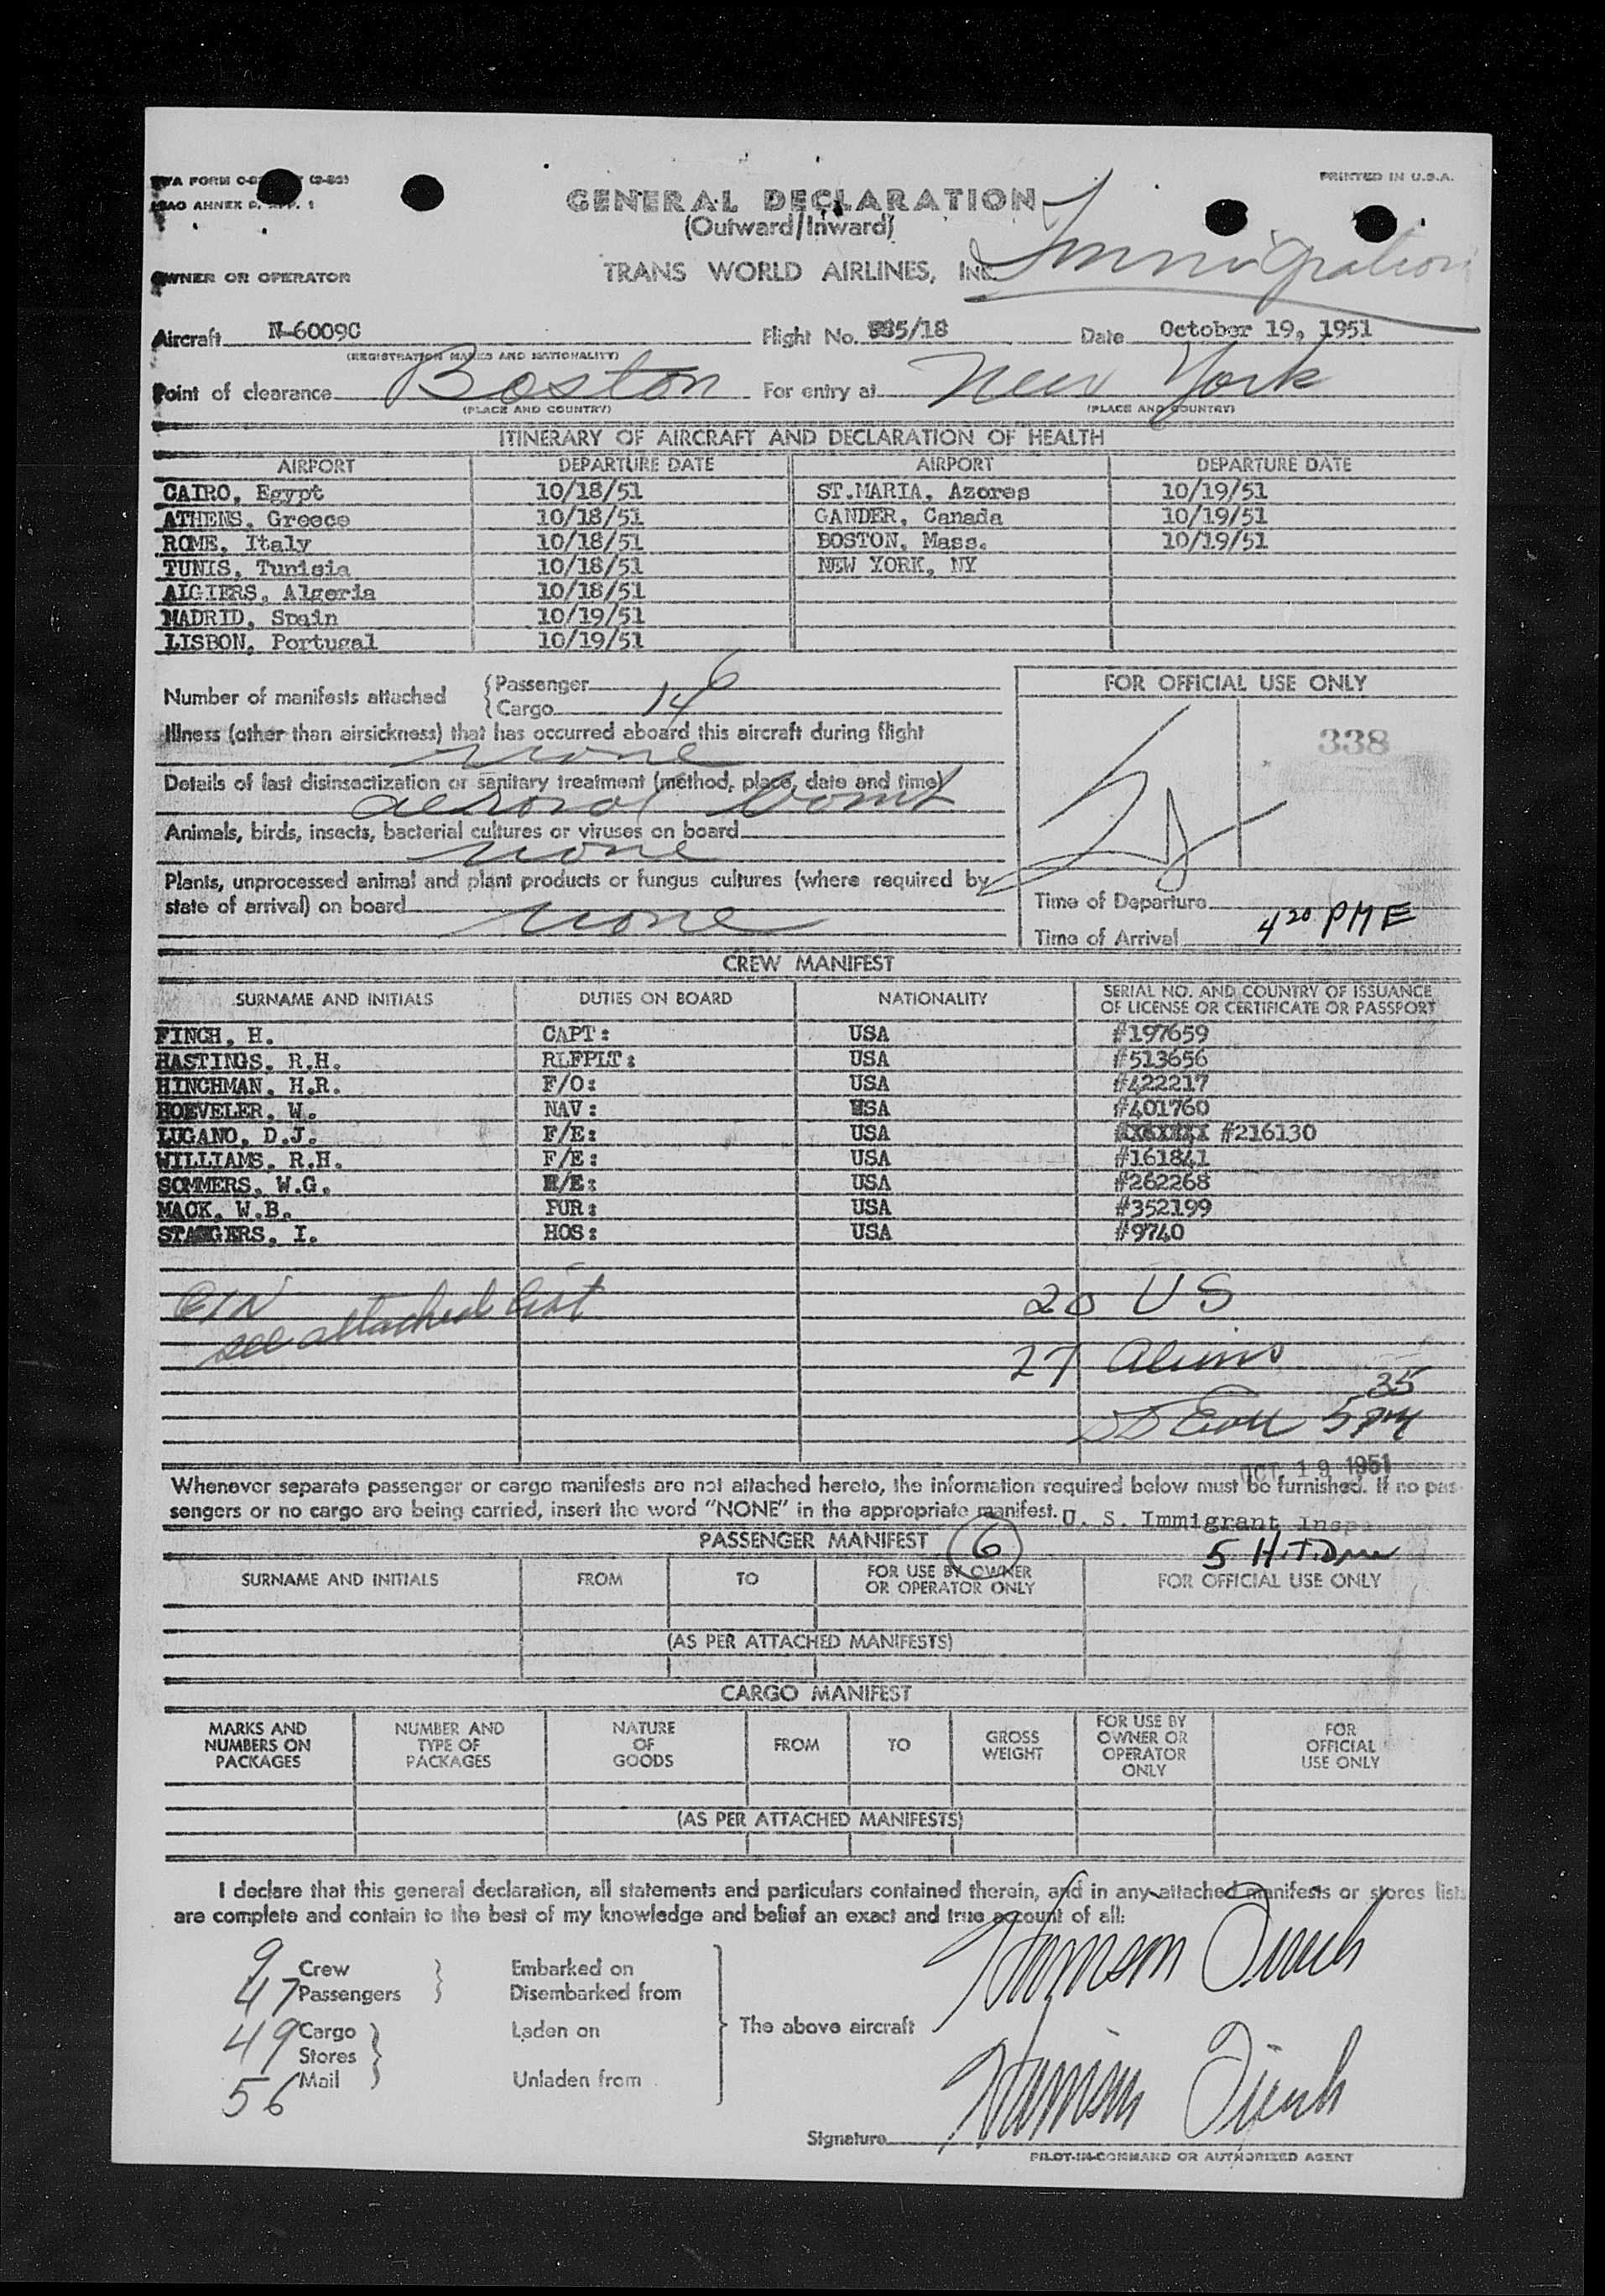 TWA FORM (3-50)
ICAO ANNEX 9, APP. 1
PRINTED IN U.S.A.
GENERAL DECLARATION
(Outward/Inward)
Immigration
OWNER OR OPERATOR TRANS WORLD AIRLINES, INC.
Aircraft N-6009C Flight No. 935/18 Date October 19, 1951
(REGISTRATION MARKS AND NATIONALITY)
Point of clearance Boston For entry at New York
(PLACE AND COUNTRY) (PLACE AND COUNTRY)
ITINERARY OF AIRCRAFT AND DECLARATION OF HEALTH
AIRPORT DEPARTURE DATE AIRPORT DEPARTURE DATE
CAIRO, Egypt 10/18/51 ST.MARIA, Azores 10/19/51
ATHENS, Greece 10/18/51 GANDER, Canada 10/19/51
ROME, Italy 10/18/51 BOSTON, Mass. 10/19/51
TUNIS, Tunisia 10/18/51 NEW YORK, NY
ALGIERS, Algeria 10/18/51
MADRID, Spain 10/19/51
LISBON, Portugal 10/19/51
Number of manifests attached
Passenger 6
Cargo 14
Illness (other than airsickness) that has occurred aboard this aircraft during flight
none
Details of last disinsectization or sanitary treatment (method, place, date and time)
aerosol bomb
Animals, birds, insects, bacterial cultures or viruses on board
none
Plants, unprocessed animal and plant products or fungus cultures (where required by
state of arrival) on board none
FOR OFFICIAL USE ONLY
338
Time of Departure
Time of Arrival 4 20 PM E
CREW MANIFEST
SURNAME AND INITIALS DUTIES ON BOARD NATIONALITY SERIAL NO. AND COUNTRY OF ISSUANCE
OF LICENSE OR CERTIFICATE OR PASSPORT
FINCH, H. CAPT: USA #197659
HASTINGS, R.H. RLFPLT: USA #513656
HINCHMAN, H.R. F/O: USA #422217
HOEVELER, W. NAV: USA #401760
LUGANO, D.J. F/E: USA #216130
WILLIAMS, R.H. F/E: USA #161841
SOMMERS, W.G. H/E: USA #262268
MACK, W.B. PUR: USA #352199
STAGGERS, I. HOS: USA #9740
see attached list
20 US
27 Aliens
35
5 PM
OCT 19 1951
Whenever separate passenger or cargo manifests are not attached hereto, the information required below must be furnished. If no pas-
sengers or no cargo are being carried, insert the word "NONE" in the appropriate manifest.
U. S. Immigrant Insp
PASSENGER MANIFEST 6
SURNAME AND INITIALS FROM TO FOR USE BY OWNER
OR OPERATOR ONLY FOR OFFICIAL USE ONLY
(AS PER ATTACHED MANIFESTS)
CARGO MANIFEST
MARKS AND
NUMBERS ON
PACKAGES
NUMBER AND
TYPE OF
PACKAGES
NATURE
OF
GOODS
FROM
TO
GROSS
WEIGHT
FOR USE BY
OWNER OR
OPERATOR
ONLY
FOR
OFFICIAL
USE ONLY
(AS PER ATTACHED MANIFESTS)
I declare that this general declaration, all statements and particulars contained therein, and in any attached manifests or stores lists
are complete and contain to the best of my knowledge and belief an exact and true account of all:
9 Crew Embarked on
47 Passengers Disembarked from
49 Cargo Laden on The above aircraft
Stores
56 Mail Unladen from
Harrison Finch
Harrison Finch
Signature
PILOT-IN-COMMAND OR AUTHORIZED AGENT